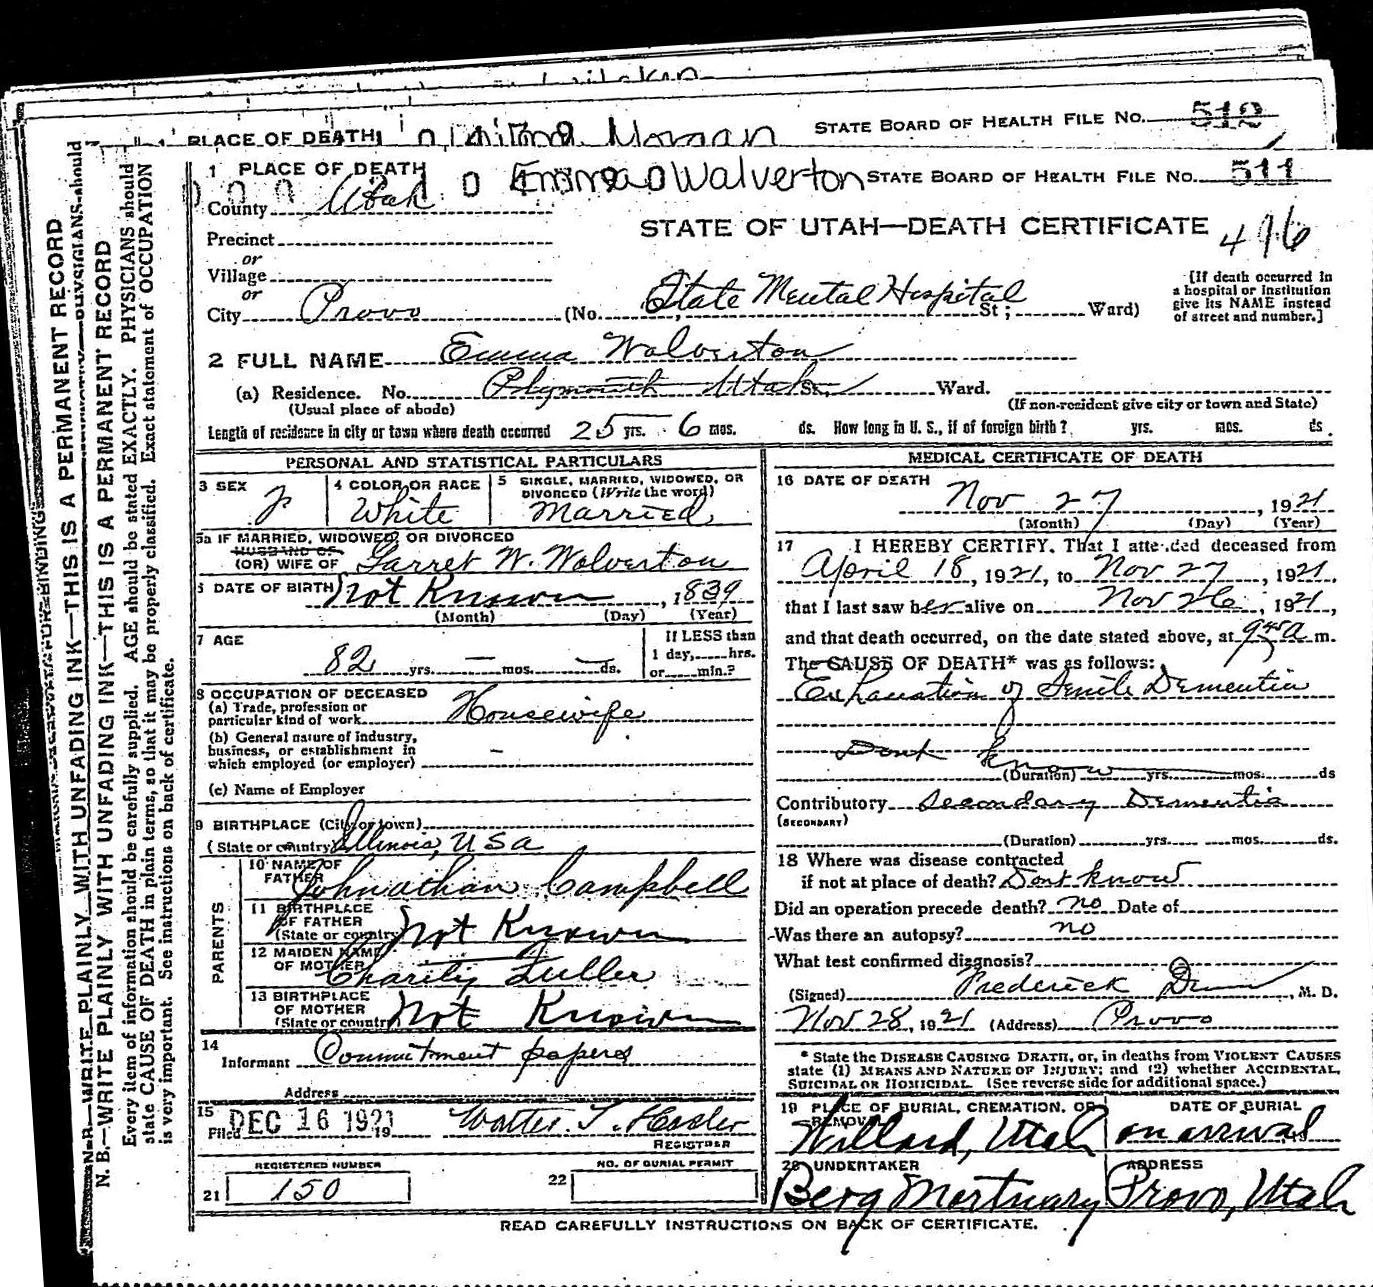 PLACE OF DEATH Morgan STATE BOARD OF HEALTH FILE No. 512
1 PLACE OF DEATH Emma Walverton STATE BOARD OF HEALTH FILE No. 511
County Utah
STATE OF UTAH—DEATH CERTIFICATE 496
Precinct
or
Village
or
City Provo (No. State Mental Hospital St; Ward)
[If death occurred in
a hospital or institution
give its NAME instead
of street and number.]
2 FULL NAME Emma Wolverton
(a) Residence. No. Plymouth Utah St, Ward.
(Usual place of abode) (If non-resident give city or town and State)
Length of residence in city or town where death occurred 25 yrs. 6 mos. ds. How long in U. S., if of foreign birth? yrs. mos. ds.
PERSONAL AND STATISTICAL PARTICULARS
3 SEX F
4 COLOR OR RACE White
5 SINGLE, MARRIED, WIDOWED, OR
DIVORCED (Write the word)
Married
5a IF MARRIED, WIDOWED, OR DIVORCED
HUSBAND OF
(OR) WIFE OF Garret W. Wolverton
6 DATE OF BIRTH Not Known, 1839
(Month) (Day) (Year)
7 AGE
82 yrs. — mos. — ds.
If LESS than
1 day, hrs.
or min.?
8 OCCUPATION OF DECEASED
(a) Trade, profession or
particular kind of work Housewife
(b) General nature of industry,
business, or establishment in
which employed (or employer) —
(c) Name of Employer
9 BIRTHPLACE (City or town)
(State or country) Illinois, USA
PARENTS
10 NAME OF
FATHER Johnathan Campbell
11 BIRTHPLACE
OF FATHER
(State or country) Not Known
12 MAIDEN NAME
OF MOTHER Charity Fuller
13 BIRTHPLACE
OF MOTHER
(State or country) Not Known
14
Informant Commitment papers
Address
15
Filed DEC 16 1921 19 Walter T. Hasler
REGISTRAR
REGISTERED NUMBER
21 150
NO. OF BURIAL PERMIT
22
MEDICAL CERTIFICATE OF DEATH
16 DATE OF DEATH
Nov 27, 1921
(Month) (Day) (Year)
17 I HEREBY CERTIFY. That I attended deceased from
April 18, 1921, to Nov 27, 1921,
that I last saw her alive on Nov 26, 1921,
and that death occurred, on the date stated above, at 9 45 a m.
The CAUSE OF DEATH* was as follows:
Exhaustion of Senile Dementia
Dont know
(Duration) yrs. mos. ds
Contributory Secondary Dementia
(SECONDARY)
(Duration) yrs. mos. ds.
18 Where was disease contracted
if not at place of death? Dont know
Did an operation precede death? no Date of
Was there an autopsy? no
What test confirmed diagnosis?
(Signed) Frederick Dunn, M. D.
Nov 28, 1921 (Address) Provo
* State the DISEASE CAUSING DEATH, or, in deaths from VIOLENT CAUSES
state (1) MEANS AND NATURE OF INJURY; and (2) whether ACCIDENTAL,
SUICIDAL OR HOMICIDAL. (See reverse side for additional space.)
19 PLACE OF BURIAL, CREMATION, OR
REMOVAL
Willard, Utah
DATE OF BURIAL
on arrival
20 UNDERTAKER
Berg Mortuary
ADDRESS
Provo, Utah
READ CAREFULLY INSTRUCTIONS ON BACK OF CERTIFICATE.
N. B.—WRITE PLAINLY WITH UNFADING INK—THIS IS A PERMANENT RECORD
N. B.—WRITE PLAINLY WITH UNFADING INK—THIS IS A PERMANENT RECORD
Every item of information should be carefully supplied. AGE should be stated EXACTLY. PHYSICIANS should
state CAUSE OF DEATH in plain terms, so that it may be properly classified. Exact statement of OCCUPATION
is very important. See instructions on back of certificate.